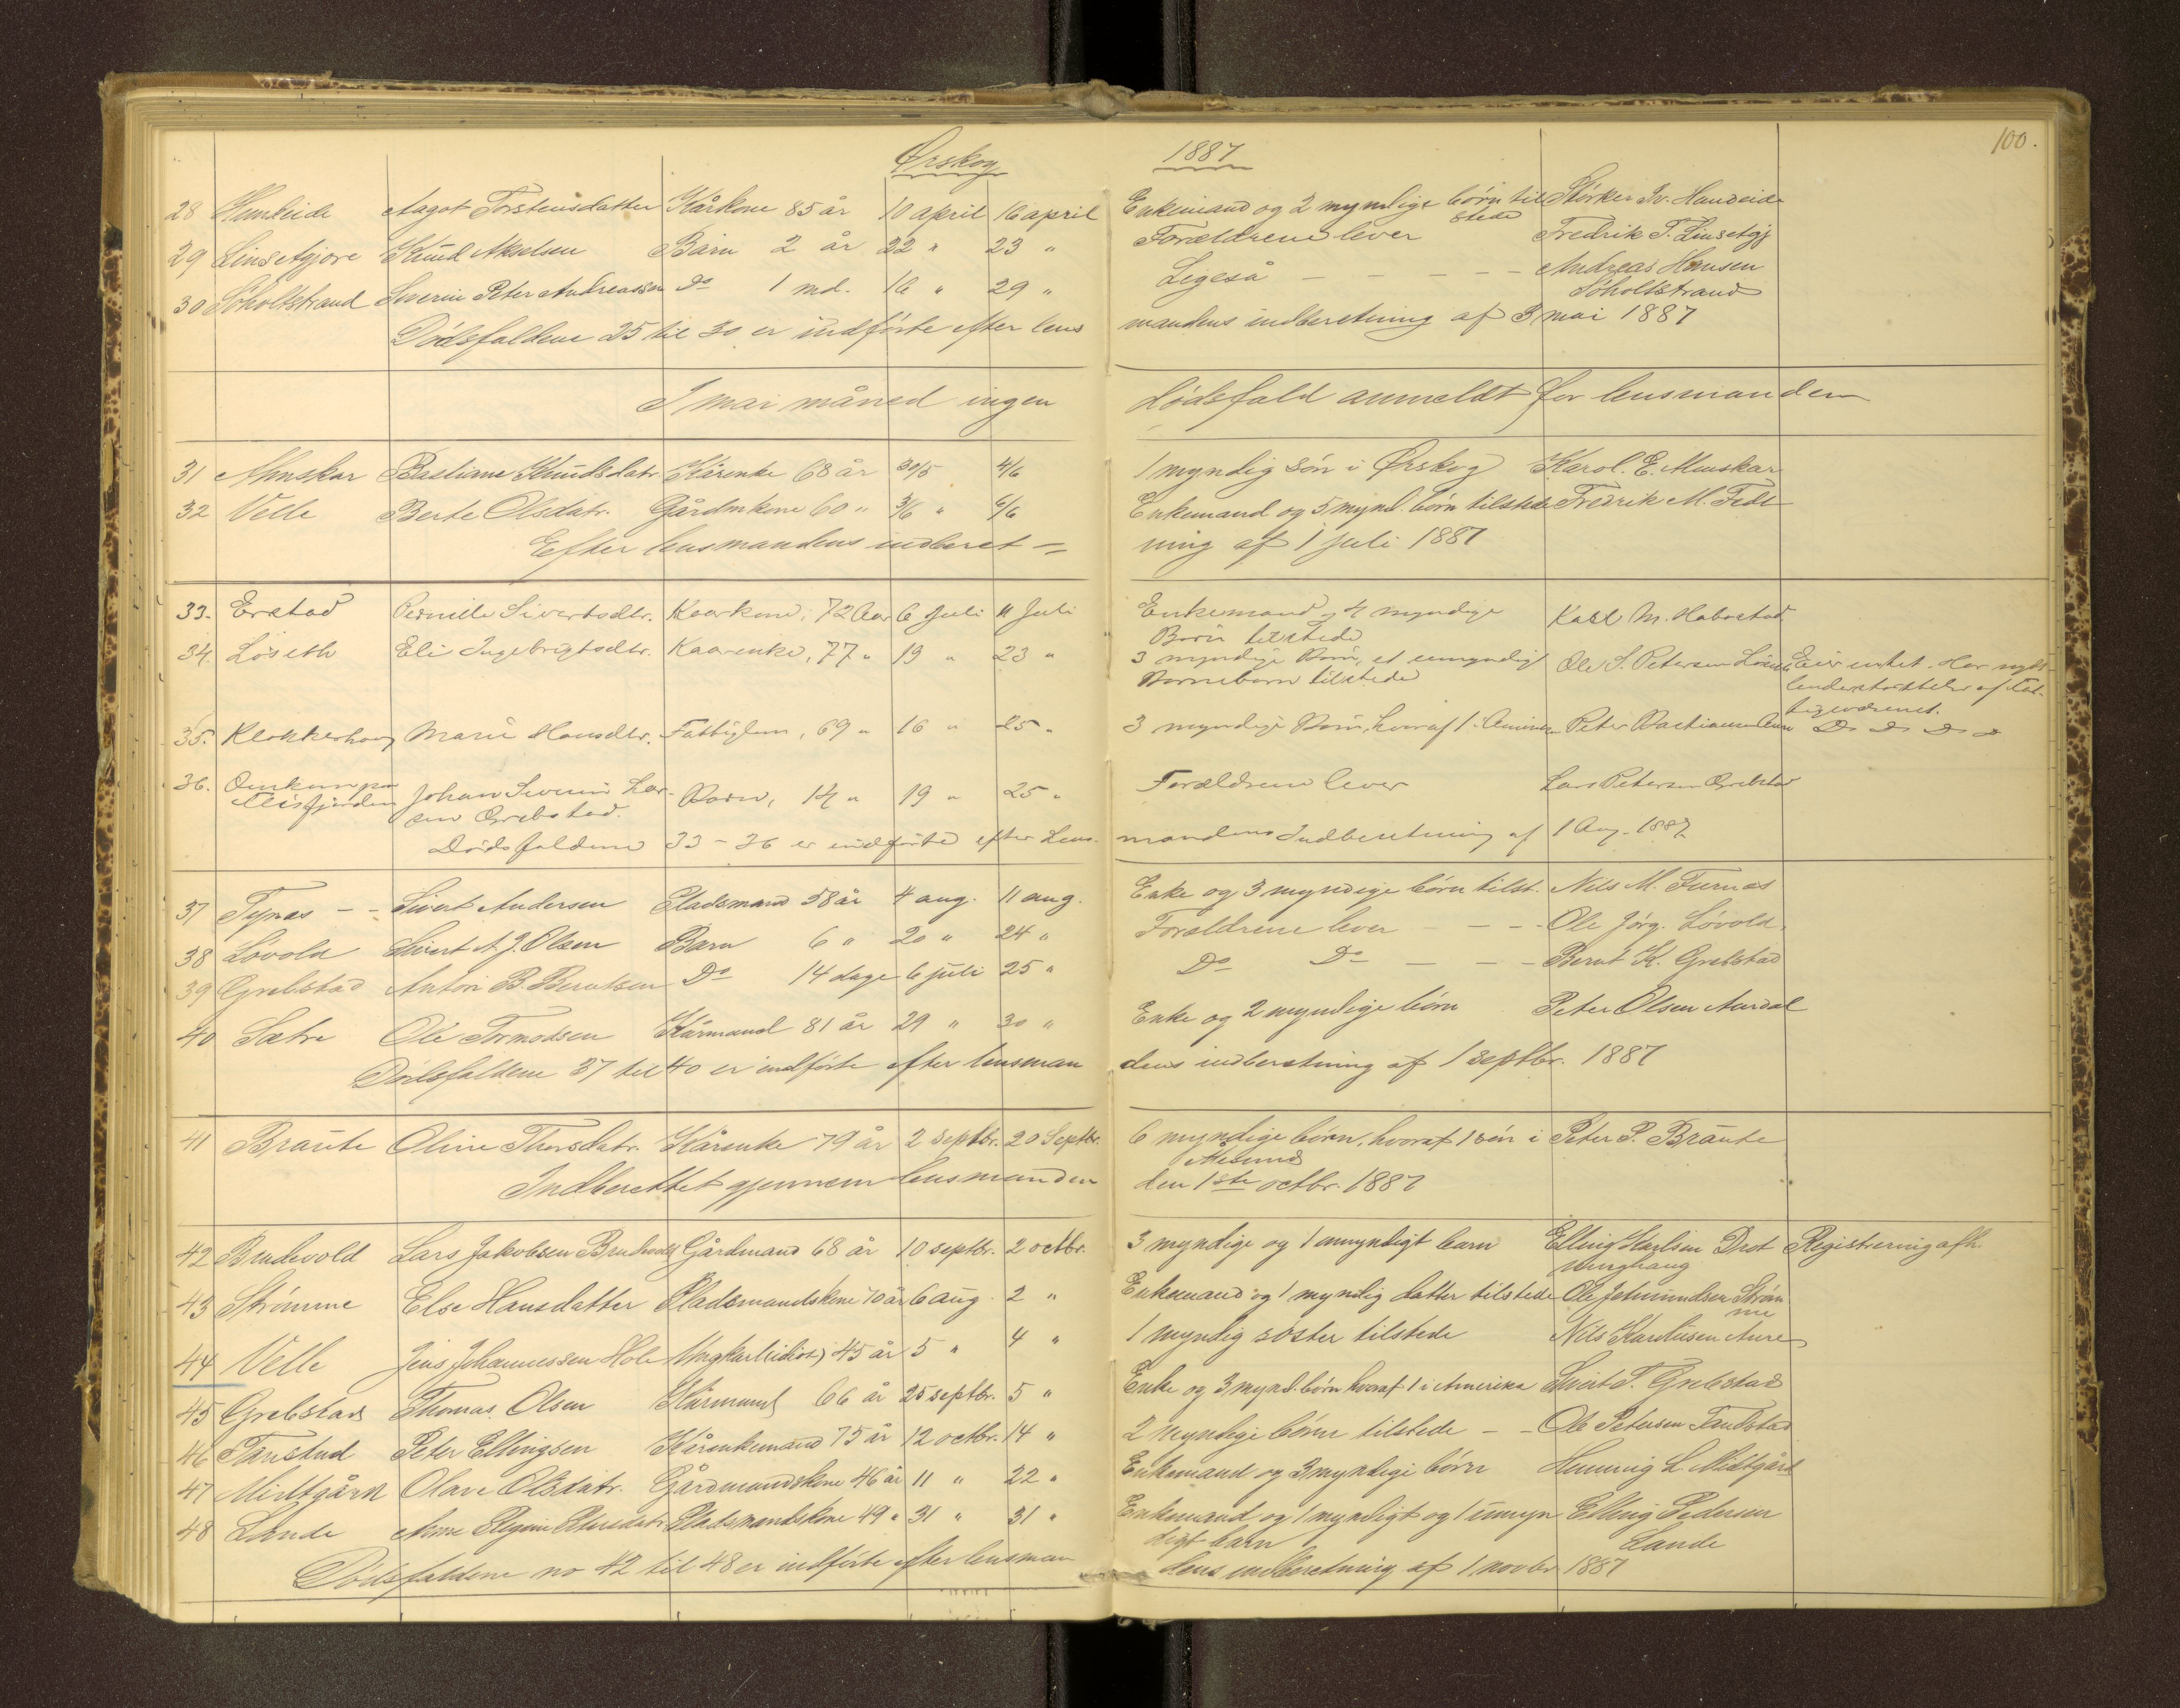 Ørskog 1887 100.
28 Hauseide Aagot Torstensdatter Kårkone 85 år 10 april 16 april Enkemand og 2 myndige børn til Størker Iv. Hauseide
stede
29 Linsetgjøre Knud Akselsen Barn 2 år 22 " 23 " Forældrene lever Fredrik T. Linsetgj
30 Søholtstrand Severin Peter Andreassen Do 1 md. 16 " 29 " Ligeså — — — — Andreas Hansen
Søholtstrand
Dødsfaldene 25 til 30 er indførte efter lens mandens indberetning af 3 mai 1887
I mai måned ingen dødsfald anmeldt for lensmanden
31 Amskar Bastiane Knudsdatr. Kårenke 68 år 30/5 4/6 1 myndig søn i Ørskog Karol. E. Amskar
32 Velle Berte Olsdatr. Gårdmkone 60 " 3/6 " 6/6 Enkemand og 5 mynd. børn tilstede Fredrik M. Fede
Efter lensmandens indberet= ning af 1 juli 1887
33. Erstad Pernille Sivertsdtr. Kaarkone, 72 Aar 6 Juli 11 Juli Enkemand og 4 myndige Karl M. Habostad
Børn tilstede
34. Løseth Eli Ingebrigtsdtr. Kaarenke, 77 " 19 " 23 " 3 myndige Børn, et umyndigt Ole S. Petersen Løseth Eier intet. Har nydt
Barnebarn tilstede understøttelse af Fat-
tigvæsenet.
35. Klokkerhaug Marie Hansdtr. Fattiglem, 69 " 16 " 25 " 3 myndige Børn, hvoraf 1 i Amerika Peter Bastiansen Aure Do Do Do Do
36. Ørskog Johan Severin Lar- Barn, 14 " 19 " 25 " Forældrene lever Lars Petersen Grebstad
sen Grebstad.
Dødsfaldene 33-36 er indførte efter Lens- mandens Indberetning af 1 Aug. 1887
37 Tynes - - Sivert Andersen Pladsmand 58 år 4 aug. 11 aug. Enke og 3 myndige børn tilst. Nils M. Furnes
38 Løvold Sivert A. J. Olsen Barn 6 " 20 " 24 " Forældrene lever — — — Ole Jørg. Løvold
39 Grebstad Anton B. Berntsen Do 14 dage 6 juli 25 " Do Do — — — Bernt K. Grebstad
40 Sætre Ole Tormodsen Kårmand 81 år 29 " 30 " Enke og 2 myndige børn Peter Olsen Aurdal
Dødsfaldene 37 til 40 er indførte efter lensman dens indberetning af 1 septbr. 1887
41 Braute Oline Thorsdatr. Kårenke 79 år 2 septbr. 20 Septbr. 6 myndige børn, hvoraf 1 søn i Peter P. Braute
Ålesund
Indberettet gjennem lensmanden den 1ste octbr. 1887
42 Brudevold Lars Jakobsen Brudevold Gårdmand 68 år 10 septbr. 2 octbr. 3 myndige og 1 umyndigt barn Elling Karlsen Drot Registrering afh.
ninghaug
43 Strømme Else Hansdatter Pladsmandskone 70 år 6 aug. 2 " Enkemand og 1 myndig datter tilstede Ole Jetmundsen Strøm
me
44 Velle Jens Johannessen Hole Ungkarl (idiot) 45 år 5 " 4 " 1 myndig søster tilstede Nils Karolusen Aure
45 Grebstad Thomas Olsen Kårmand 66 år 25 septbr. 5 " Enke og 3 mynd. børn hvoraf 1 i Amerika Sivert T. Grebstad
46 Tanstad Peter Ellingsen Kårenkemand 75 år 12 octbr. 14 " 2 myndige børn tilstede - - Ole Petersen Tandstad
47 Midtgård Olave Olsdatr. Gårdmandskone 46 år 11 " 22 " Enkemand og 3 myndige børn Henning L. Midtgård
48 Lande Anne Elgine Petersdatr. Pladsmandskone 49 " 31 " 31 " Enkemand og 1 myndigt og 1 umyn Elling Pedersen
digt barn Lande
Dødsfaldene no 42 til 48 er indførte efter lensman dens indberetning af 1 novbr 1887